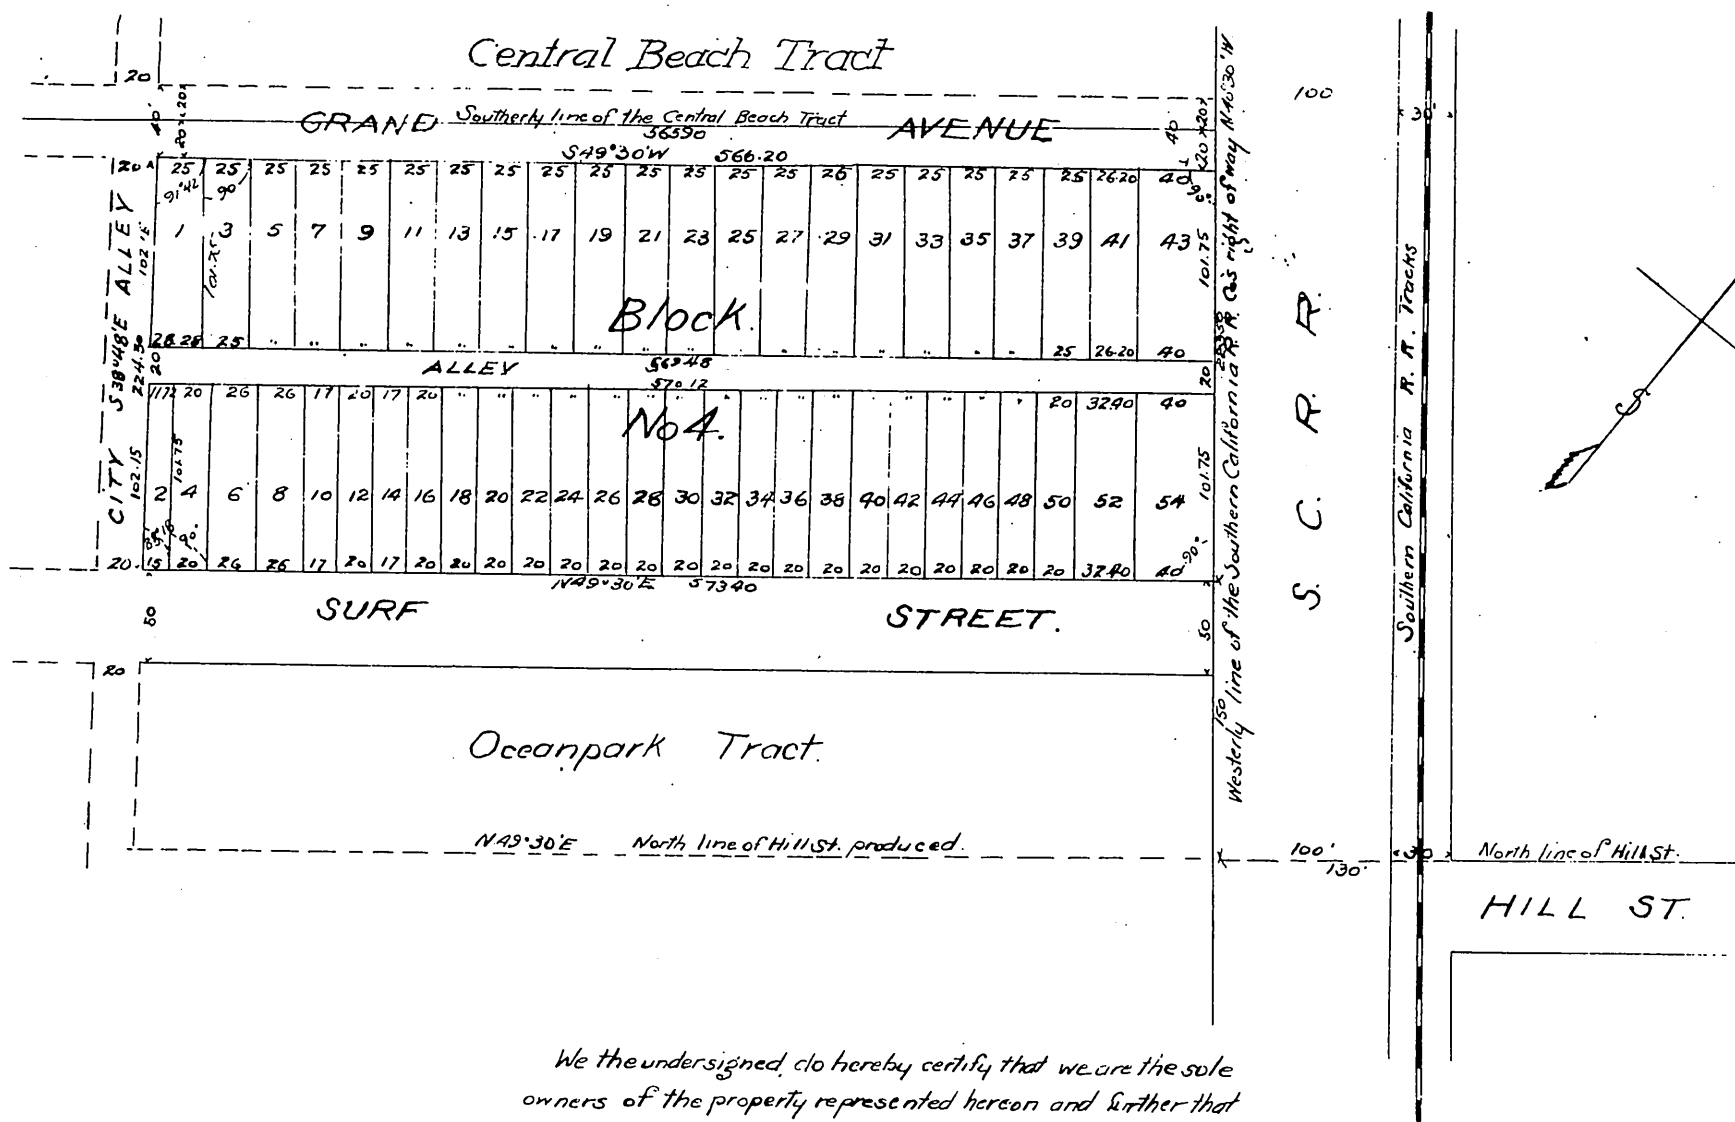 Central Beach Tract
20
40'
20 x 20
GRAND AVENUE
Southerly line of the Central Beach Tract
56590
40
20 x 20
100
30'
S49°30'W 566.20
20 A 25 25 25 25 25 25 25 25 25 25 25 25 25 25 26 25 25 25 25 25 26.20 40
91°42 90° 90°
1 3 5 7 9 11 13 15 17 19 21 23 25 27 29 31 33 35 37 39 41 43
101.75
102.15
101.75
Block.
28.28 25 " " " " " " " " " " " " " " " " " 25 26.20 40
20 ALLEY 20
56948
570.12
1172 20 26 26 17 20 17 20 " " " " " " " " " " " " " " " " 20 3240 40
No 4.
101.75
102.15
101.75
2 4 6 8 10 12 14 16 18 20 22 24 26 28 30 32 34 36 38 40 42 44 46 48 50 52 54
90° 90°
20 15 20 26 26 17 20 17 20 20 20 20 20 20 20 20 20 20 20 20 20 20 20 20 20 20 3240 40
N49°30'E 57340
CITY ALLEY
S38°48'E
224.30
SURF STREET.
50 50
20
Oceanpark Tract.
150
N49°30'E North line of Hill St. produced.
Westerly line of the Southern California R.R. Co's right of way N40°30'W
S. C. R. R.
Southern California R. R. Tracks
S
100' 30
130'
North line of Hill St.
HILL ST.
We the undersigned, do hereby certify that we are the sole
owners of the property represented hereon and further that